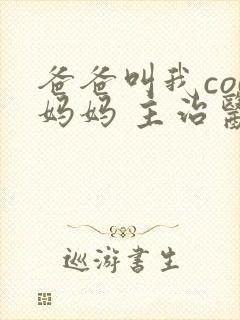 爸爸叫我co
妈妈 主治醫
巡游書生